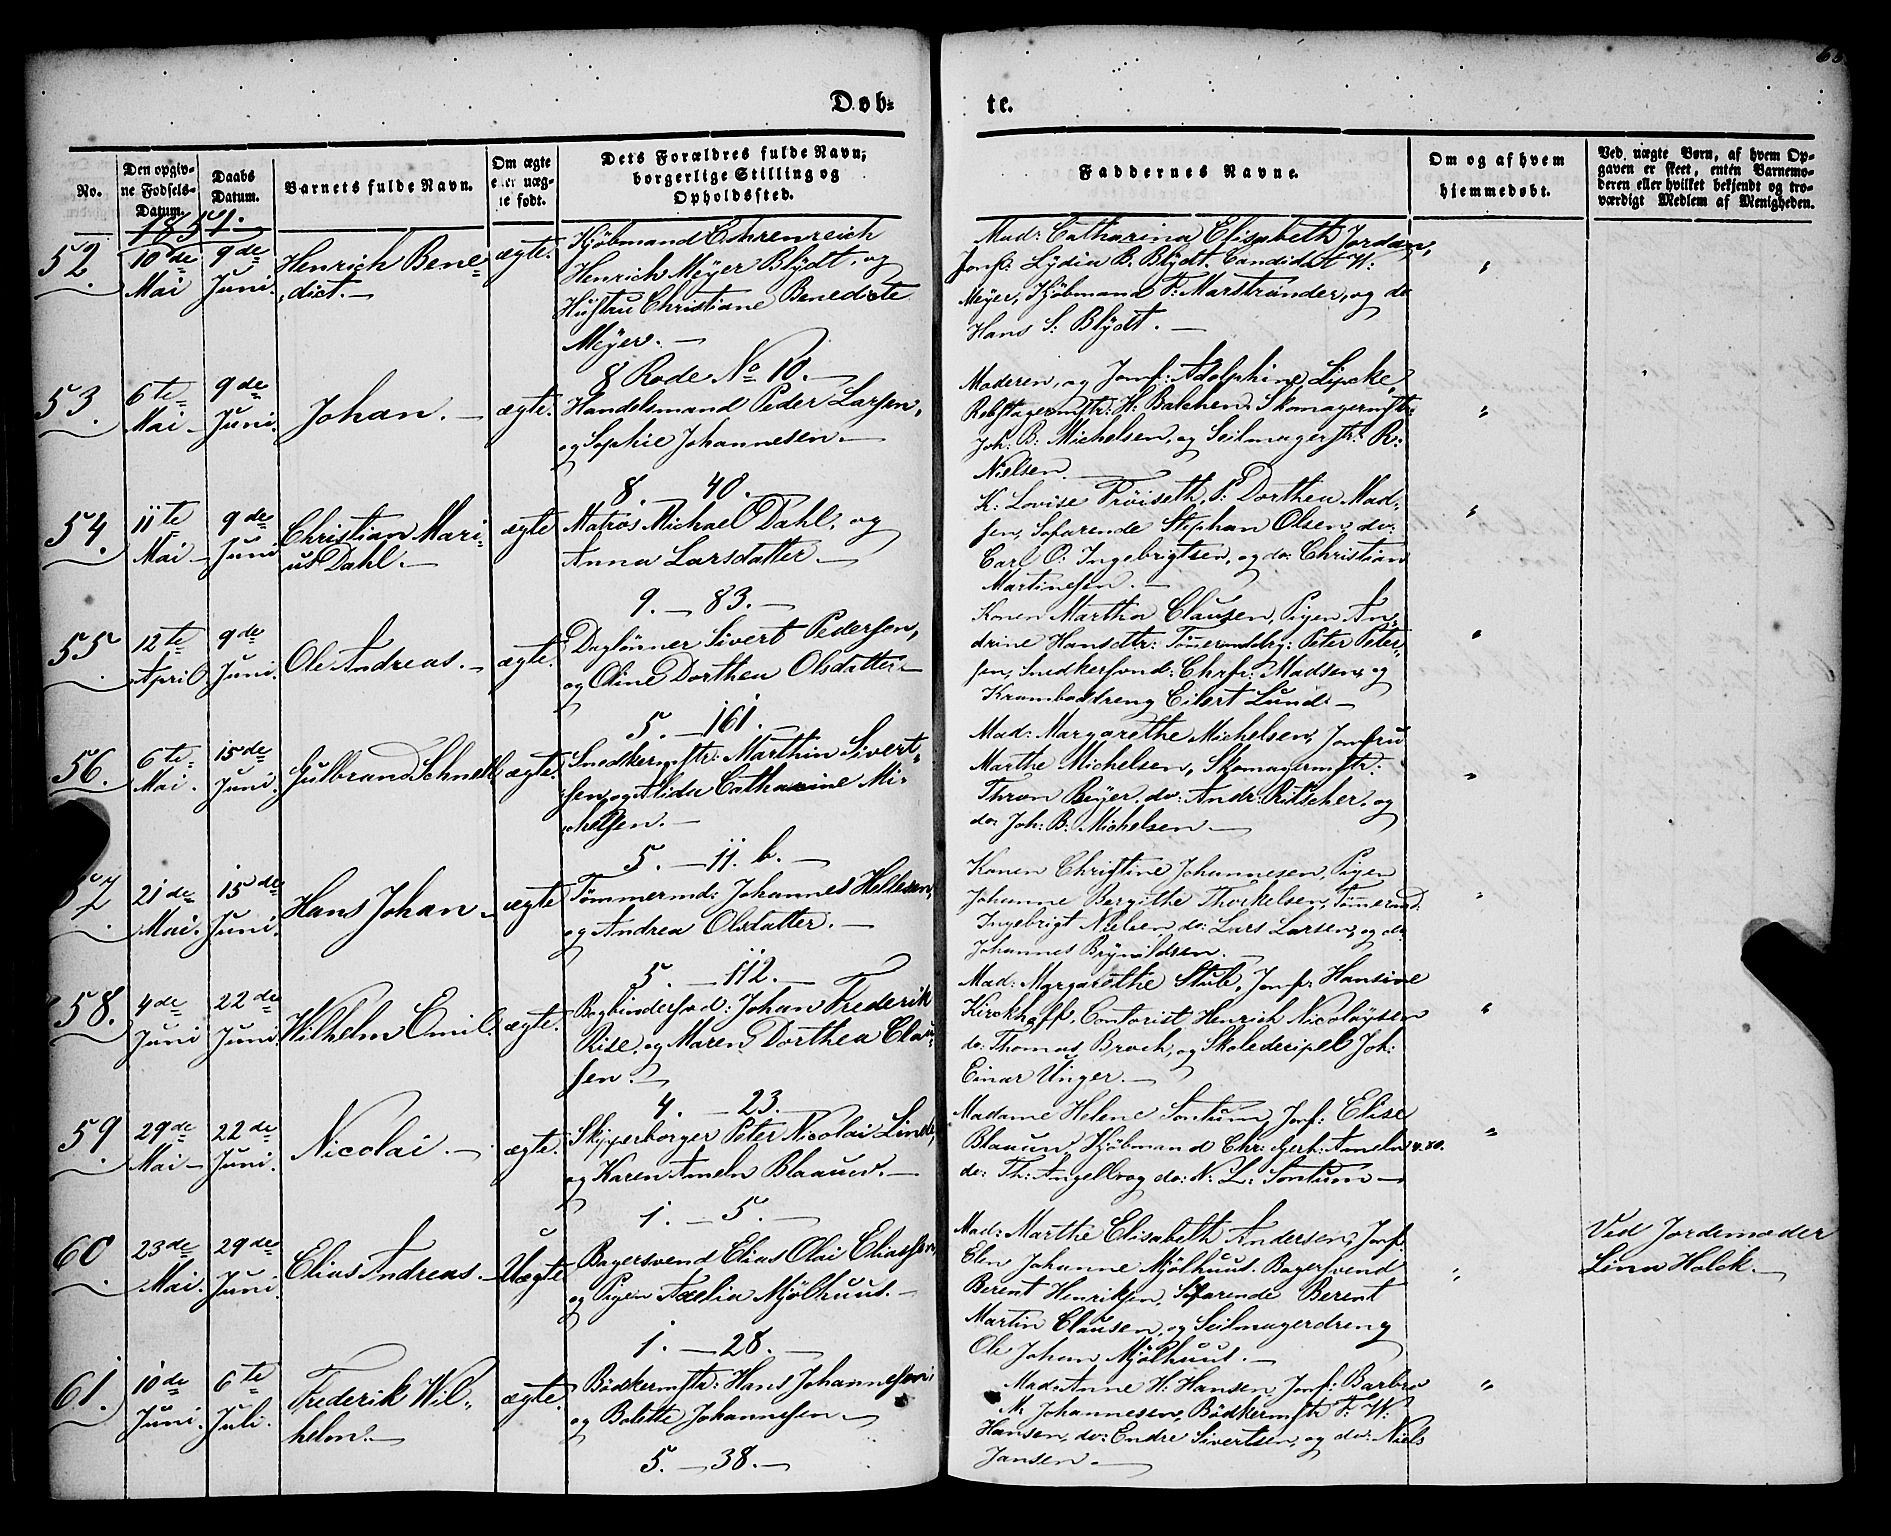 68
Døb-
te.
No.
Den opgiv-
ne Fødsels-
Datum.
Daabs
Datum.
Barnets fulde Navn.
Om ægte
eller uæg-
te født.
Dets Forældres fulde Navn,
borgerlige Stilling og
Opholdssted.
Faddernes Navne.
Om og af hvem
hjemmedøbt.
Ved uægte Børn, af hvem Op-
gaven er skeet, enten Barnemo-
deren eller hvilket bekjendt og tro-
værdigt Medlem af Menigheden.
1851.
52.
10de
Mai
9de
Juni.
Henrich Bene-
dict.
ægte.
Kjöbmand Ehrenreich
Henrich Meÿer Blÿdt, og
Hustru Christiane Benedicte
Meÿer.
8 Rode No 10.
Mad: Catharina Elisabeth Jordan,
Jomf: Lÿdia B. Blÿdt, Candidat W:
Meÿer, Kjöbmand F: Marstrander, og do
Hans S: Blÿdt.
"
53.
6te
Mai
9de
Juni.
Johan.
ægte.
Handelsmand Peder Larsen,
og Sophie Johannesen
8. 40.
Moderen, og Jomf: Adolphine Lÿcke,
Rebslagermstr: H: Balchen, Skomagermstr:
Joh: B: Michelsen, og Seilmagerstr: R:
Nielsen
"
54.
11te
Mai
9de
Juni
Christian Mari-
us Dahl.
ægte
Matros Michael Dahl, og
Anna Larsdatter
9. 83.
K: Lovise Fröiseth, P: Dorthea Mad-
sen, Söfarende Stephan Olsen, do:
Carl O: Ingebrigtsen, og do: Christian
Martinesen.
"
55
12te
April
9de
Juni.
Ole Andreas.
ægte.
Daglönner Sivert Pedersen,
og Oline Dorthea Olsdatter
5. 161.
Konen Martha Clausen, Pigen An-
drine Hansdtr: Peter Peter-
sen, Madsen, og
Kramboddreng Eilert Lund
"
56.
6te
Mai.
15de
Juni.
Gulbrand Schnell
ægte.
Snedkermstr: Marthin Sivert-
sen, og Alida Catharine Mi-
chelsen.
5. 11. b.
Mad: Margarethe Michelsen, Jomfru
Marthe Michelsen, Skomagermstr:
Thron Beÿer, do: Andr: Ritscher, og
do: Joh: B: Michelsen
"
57
21de
Mai.
15de
Juni.
Hans Johan
ægte
Tömmermd: Johannes Hellesen,
og Andrea Olsdatter.
5. 112.
Konen Christine Johannesen, Pigen
Johanne Bergithe Thorkelsen, Tömermd:
Ingebrigt Nielsen, do: Lars Larsen, og do
Johannes Brÿnildsen.
"
58.
4de
Juni
22de
Juni.
Wilhelm Emil.
ægte.
Bogbindersvd: Johan Frederik
Rise, og Maren Dorthea Clau-
sen.
4. 23.
Mad: Margarethe Stub, Jomf: Hansine
Kirckhoff, Contorist Henrich Nicolaÿsen
do: Thomas Broch, og Skoledicipel Joh:
Einar Unger.
"
59
29de
Mai
22de
Juni.
Nicolai.
ægte.
Skipperborger Peter Nicolai Linde,
og Karen Ameln Blaauw.
1. 5.
Madame Helene Sontum, Jomf: Elise
Blaauw, Kjöbmand Chr: Gert: Ameln
do: Th: Angell, og do: N: L: Sontum
"
60
23de
Mai.
29de
Juni.
Elias Andreas.
Uægte
Bagersvend Elias Olai Eliassen,
og Pigen Axelia Mjölhuus.
1. 28.
Mad: Marthe Elisabeth Andersen, Jomf:
Elen Johanne Mjölhuus, Bagersvend
Berent Henriksen, Söfarende Berent
Martin Clausen, og Seilmagerdreng
Ole Johan Mjölhuus.
"
Ved Jordemoder
Lina Holck.
61.
10de
Juni.
6te
Juli.
Frederik Wil-
helm.
ægte.
Bödkermstr: Hans Johannesen
og Bolette Johannesen
5. 38.
Mad: Anne H: Hansen, Jomf: Barbro
M: Johannesen, Bödkermstr F: W:
Hansen, do: Endre Sivertsen, og do: Niels
Jansen.
"